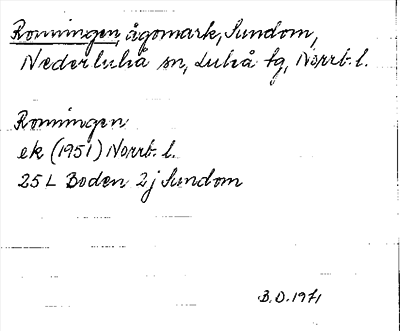 Ronningen, ägomark, Sundom,
Nederluleå sn, Luleå tg, Norrb. l.
Ronningen
ek (1951) Norrb. l.
25 L Boden 2j Sundom
B.O. 1971